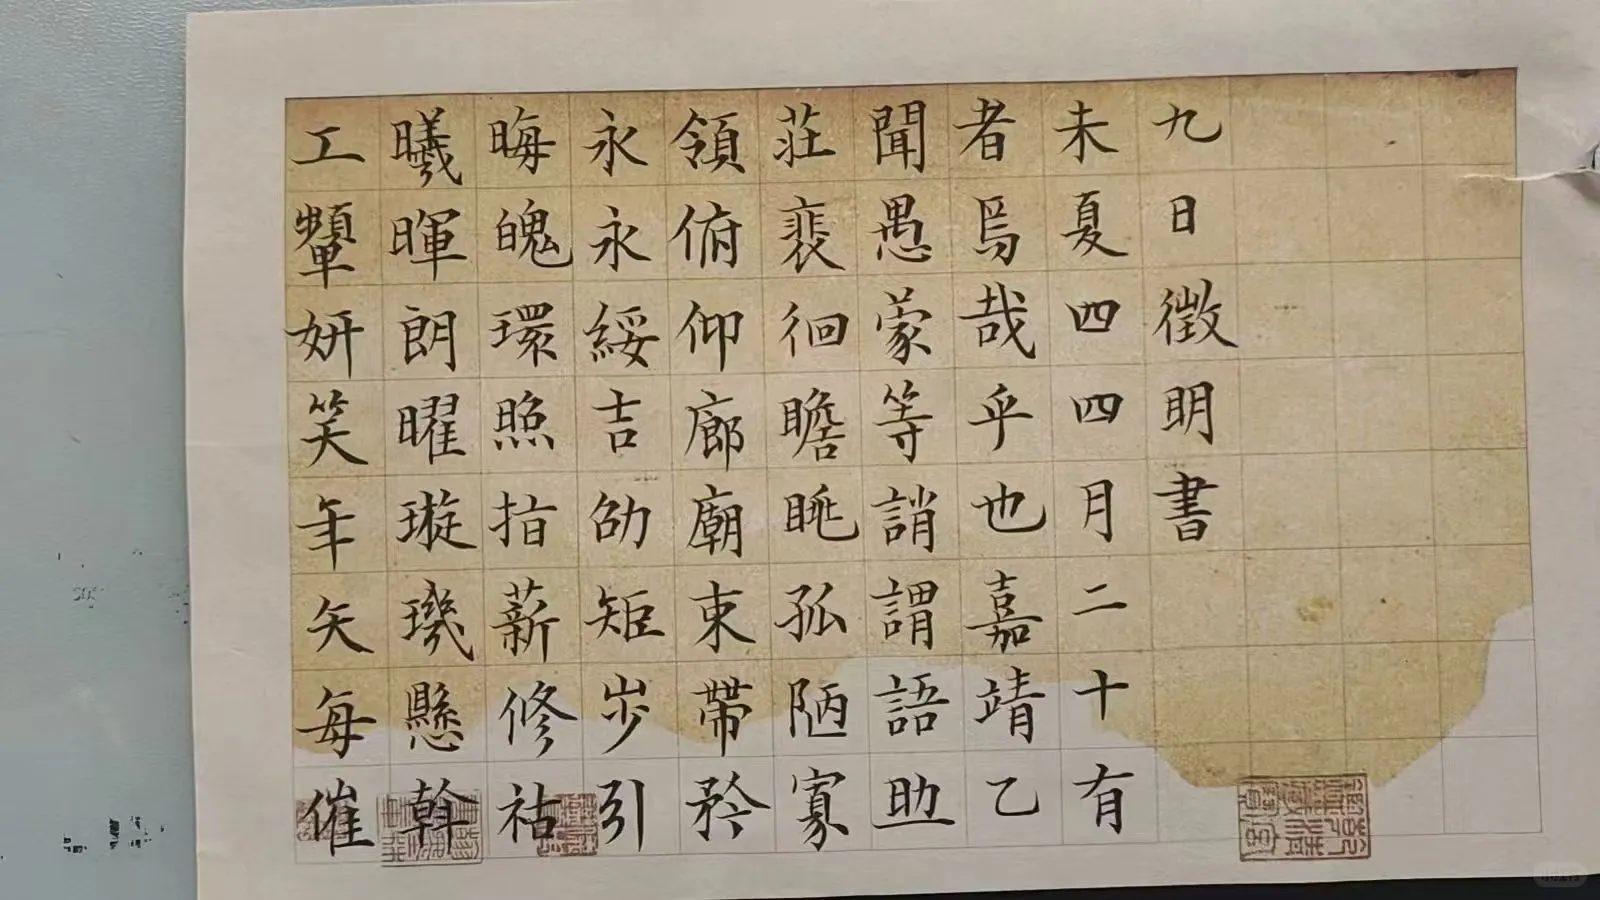 工顰妍笑年矢每催
曦暉朗曜璇璣懸斡
晦魄環照指薪修祜
永永綏吉劭矩步引
領俯仰廊廟束帶矜
荘裵徊瞻眺孤陋寡
聞愚蒙等誚謂語助
者焉哉乎也嘉靖乙
未夏四四月二十有
九日徵明書